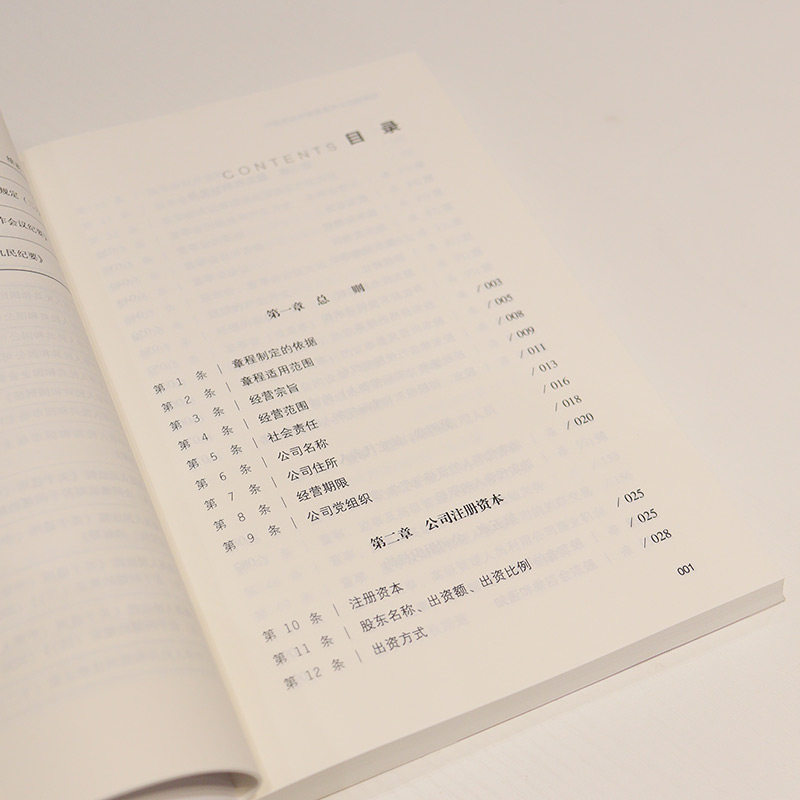 规定
作会议纪要》
九民纪要》
CONTENTS 目 录
第一章 总 则
第 1 条 | 章程制定的依据 / 003
第 2 条 | 章程适用范围 / 005
第 3 条 | 经营宗旨 / 008
第 4 条 | 经营范围 / 009
第 5 条 | 社会责任 / 011
第 6 条 | 公司名称 / 013
第 7 条 | 公司住所 / 016
第 8 条 | 经营期限 / 018
第 9 条 | 公司党组织 / 020
第二章 公司注册资本
第 10 条 | 注册资本 / 025
第 11 条 | 股东名称、出资额、出资比例 / 025
第 12 条 | 出资方式 / 028
001